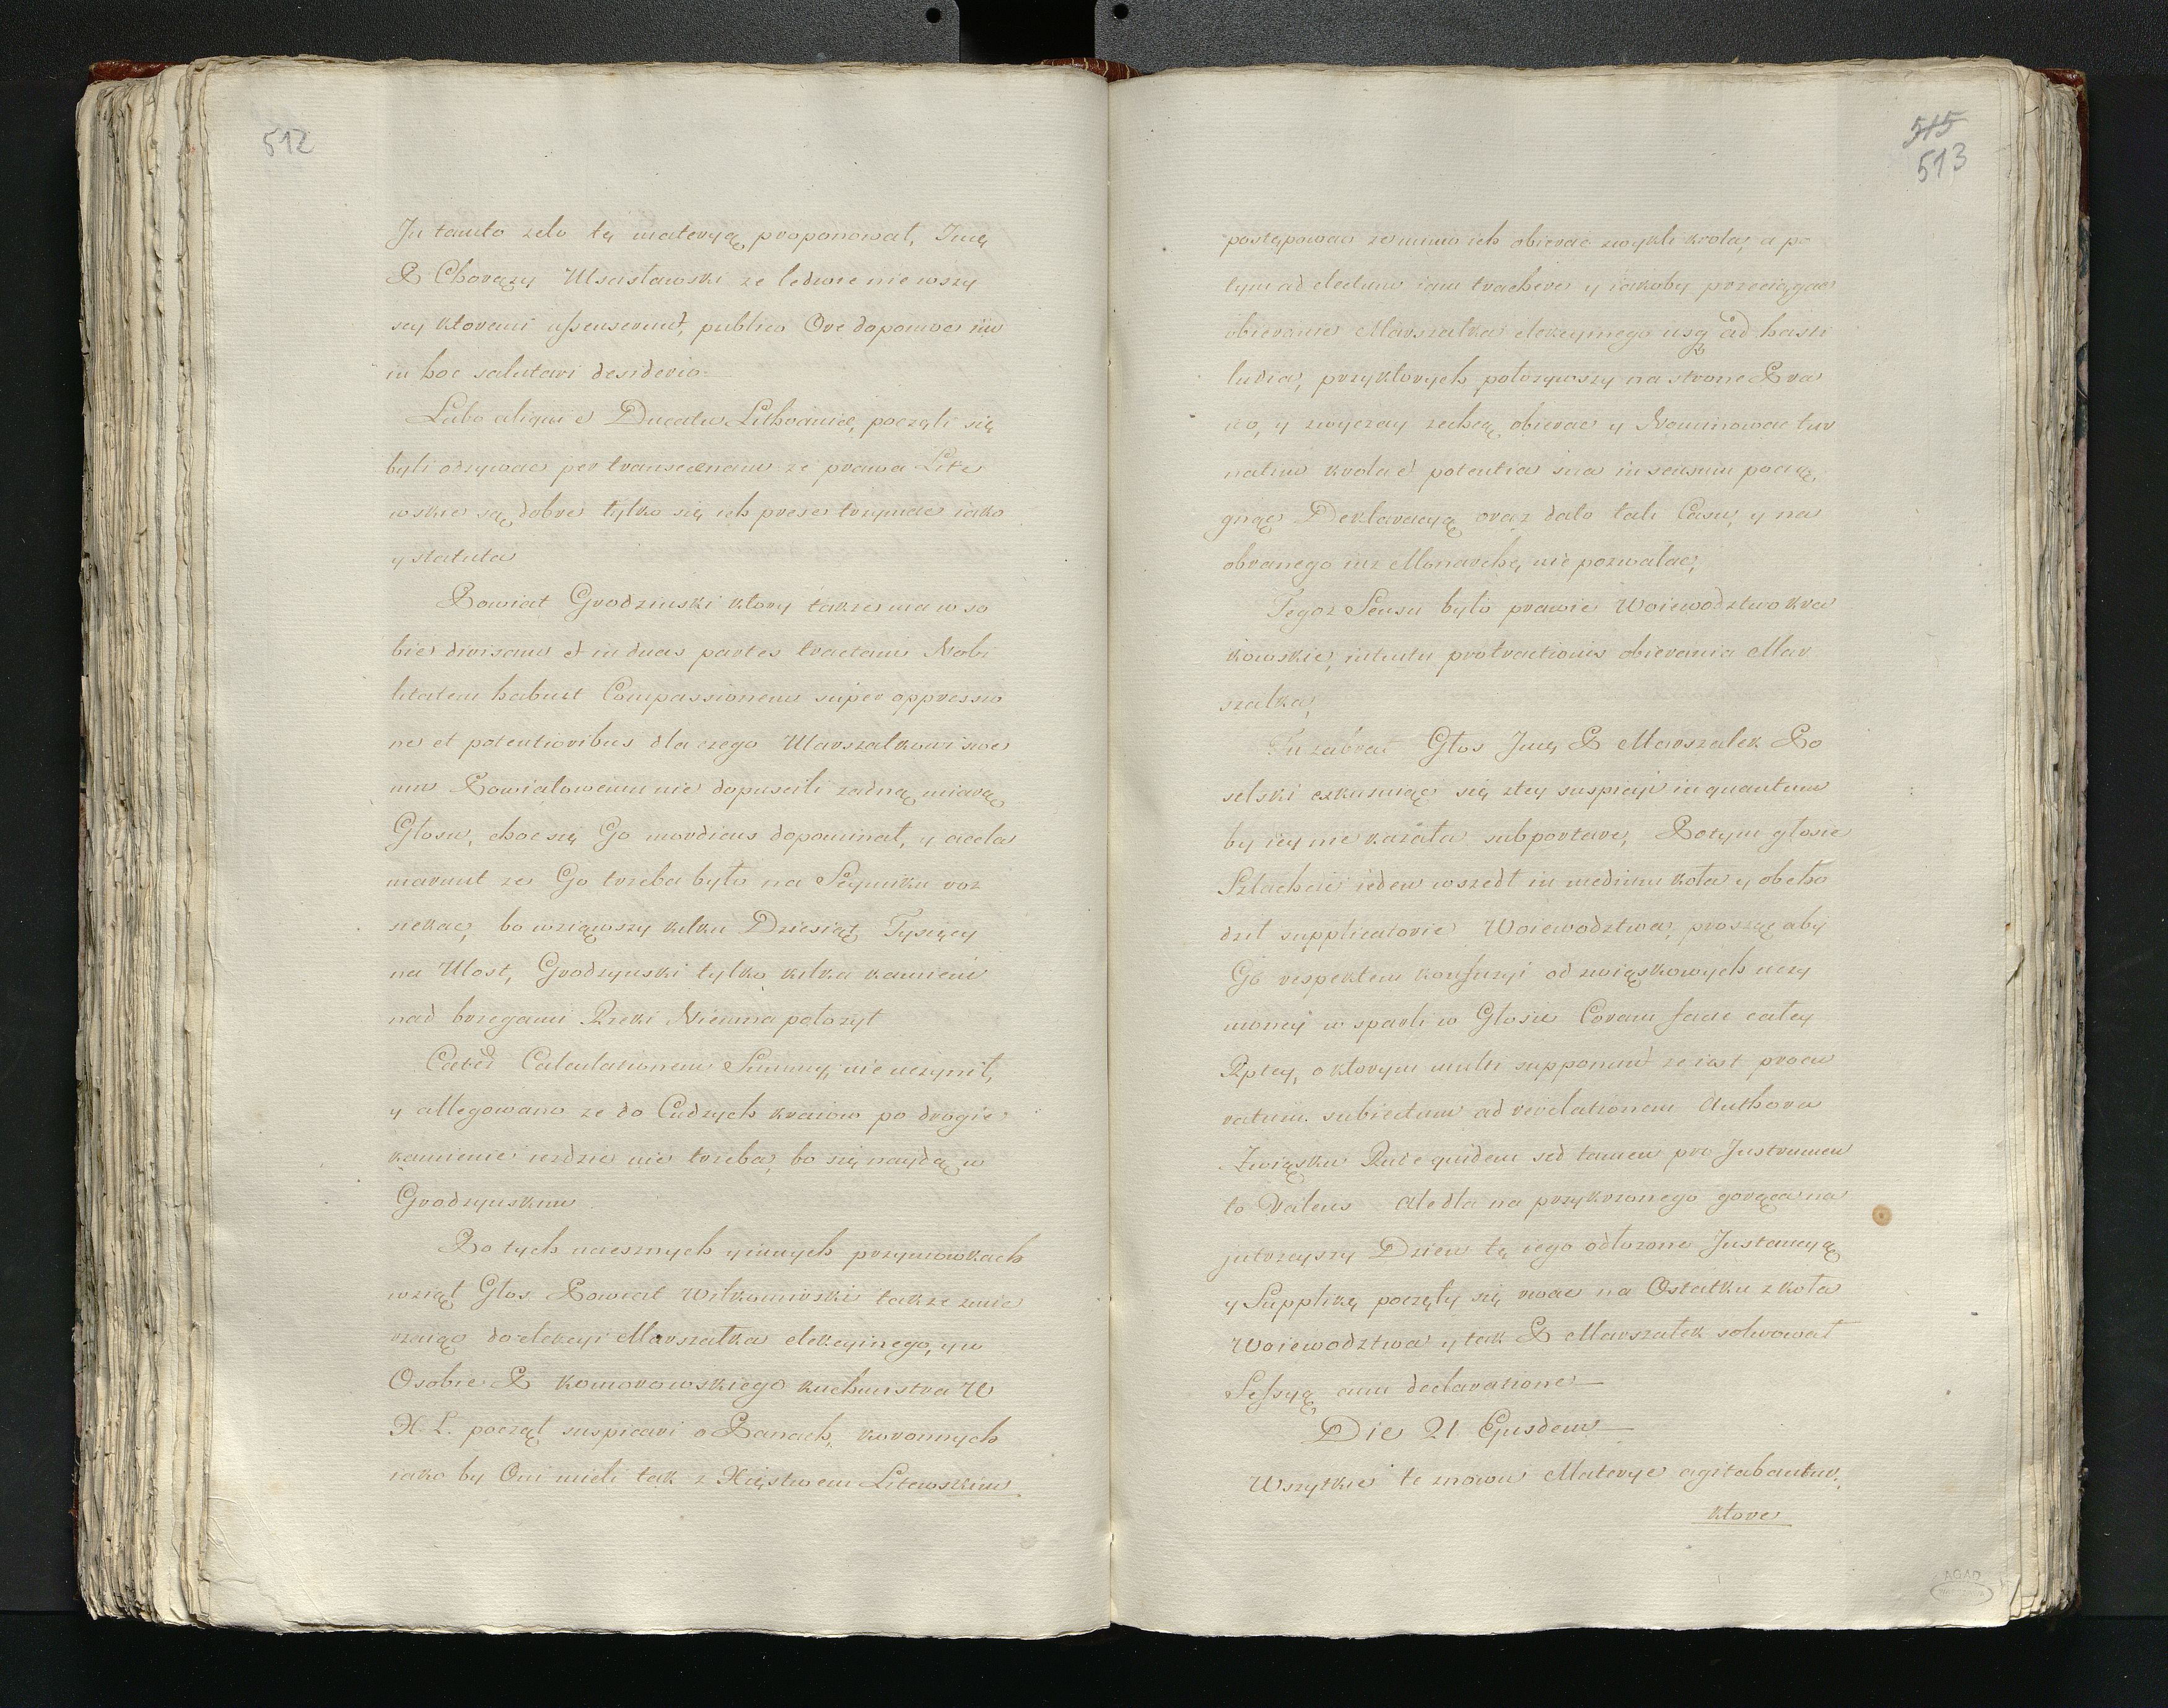 512
In tanto zelo tę materyą proponował, Imę
P Chorązy Mscisławski ze ledwie nie wszy
scy ktoremi assenserunt, publico Ore dopomoc iiu
in hoc salutari desiderio
Lubo aliqui è Ducatu Lithvaniæ, poczęli się
byli odzywac per transcennam ze prawa Lite
wskie są dobre tylko się ich prese trzymac iako
y statuta
Powiat Grodzinski ktory takze ma w so
bie divisam et in duas partes tractam Nobi
litatem habuit Compassionem super oppressio
ne et potentioribus dla czego Marszałkowi swe
mu Powiatowemu nie dopuscili zadną miarą
Głosu, choc się Go mordicus dopominał, y accla
marunt ze Go trzeba było na Seymiku roz
siekac, bo wziąwszy kilku Dziesiąt Tysięcy
na Most, Grodzynski tylko kilka kamieni
nad brzegami Rzeki Niemna położył
Calculationem Summy, nie uczynił,
y allegowano ze do Cudzych kraiow po drogie
kamienie iezdzic nie trzeba, bo się naydą w
Grodzynskim
Po tych uciesznych y innych przymowkach
wziął Głos Powiat Wilkomirski takze zmie
rzaiąc do elekcyi Marszałka elekcyinego, y w
Osobie P Komorowskiego kuchmistra W
X L. począł suspicari o Panach, koronnych
iako by Oni mieli tak z Xięstwem Litewskim
515
513
postępowac ze mimo ich obierac zwykli krola, a po
tym ad electum iam trahere y iakoby przeciągac
obieranie Marszałka elekcyinego usq ad hasti
ludia, przy ktorych położywszy na stronę Pra
wo, y zwyczay zechcą obierac y Nominowac tur
natim krola è potentia sua in sensum pocią
gnąc Deklaracyą oraz dało tali Casu, y na
obranego iuz Monarchę nie pozwalac,
Tegoz Sensu było prawie Woiewodztwo kra
kowskie, intuitu protractionis obierania Mar
szałka,
Tu zabrał Głos Imę P Marszałek Po
selski exkuzuiąc się z tey suspicyi in quantum
by iey nie kazała subportare, Po tym głosie
Szlachcic ieden wszedł in medium koła y obcho
dził supplicatorie Woiewodztwa, prosząc aby
Go respektem konfuzyi od związkowych uczy
nioney wsparli w Głosie Coram facie całey
Rptey, o ktorym multi supponunt ze iest procu
ratum subiectum ad revelationem Authora
Związku Rude quidem sed tamen pro Instrumen
to Valens Ale dla na przykrzonego gorąca na
jutrzeyszy Dzien tę iego odłozono Instancyą
y Supplikę poczęły się rwac na Ostatku z koła
Woiewodztwa y tak P Marszałek solwował
Sessyą cum declaratione
Die 21 Ejusdem
Wszytkie te znowu Materye agitabantur,
ktore
AGAD